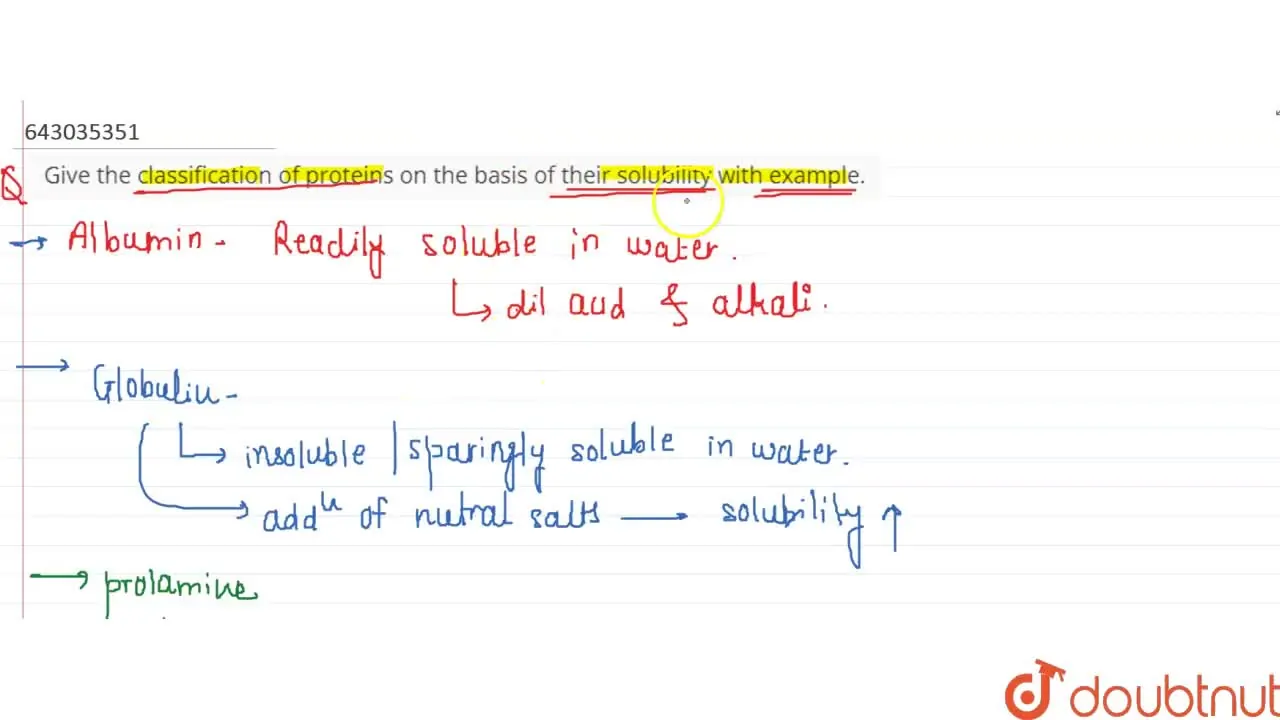 643035351
Q Give the classification of proteins on the basis of their solubility with example.
→ Albumin - Readily soluble in water.
↳ dil acid & alkali.
→ Globulin -
↳ insoluble | sparingly soluble in water.
→ addⁿ of nutral salts → solubility ↑
→ prolamine
doubtnut